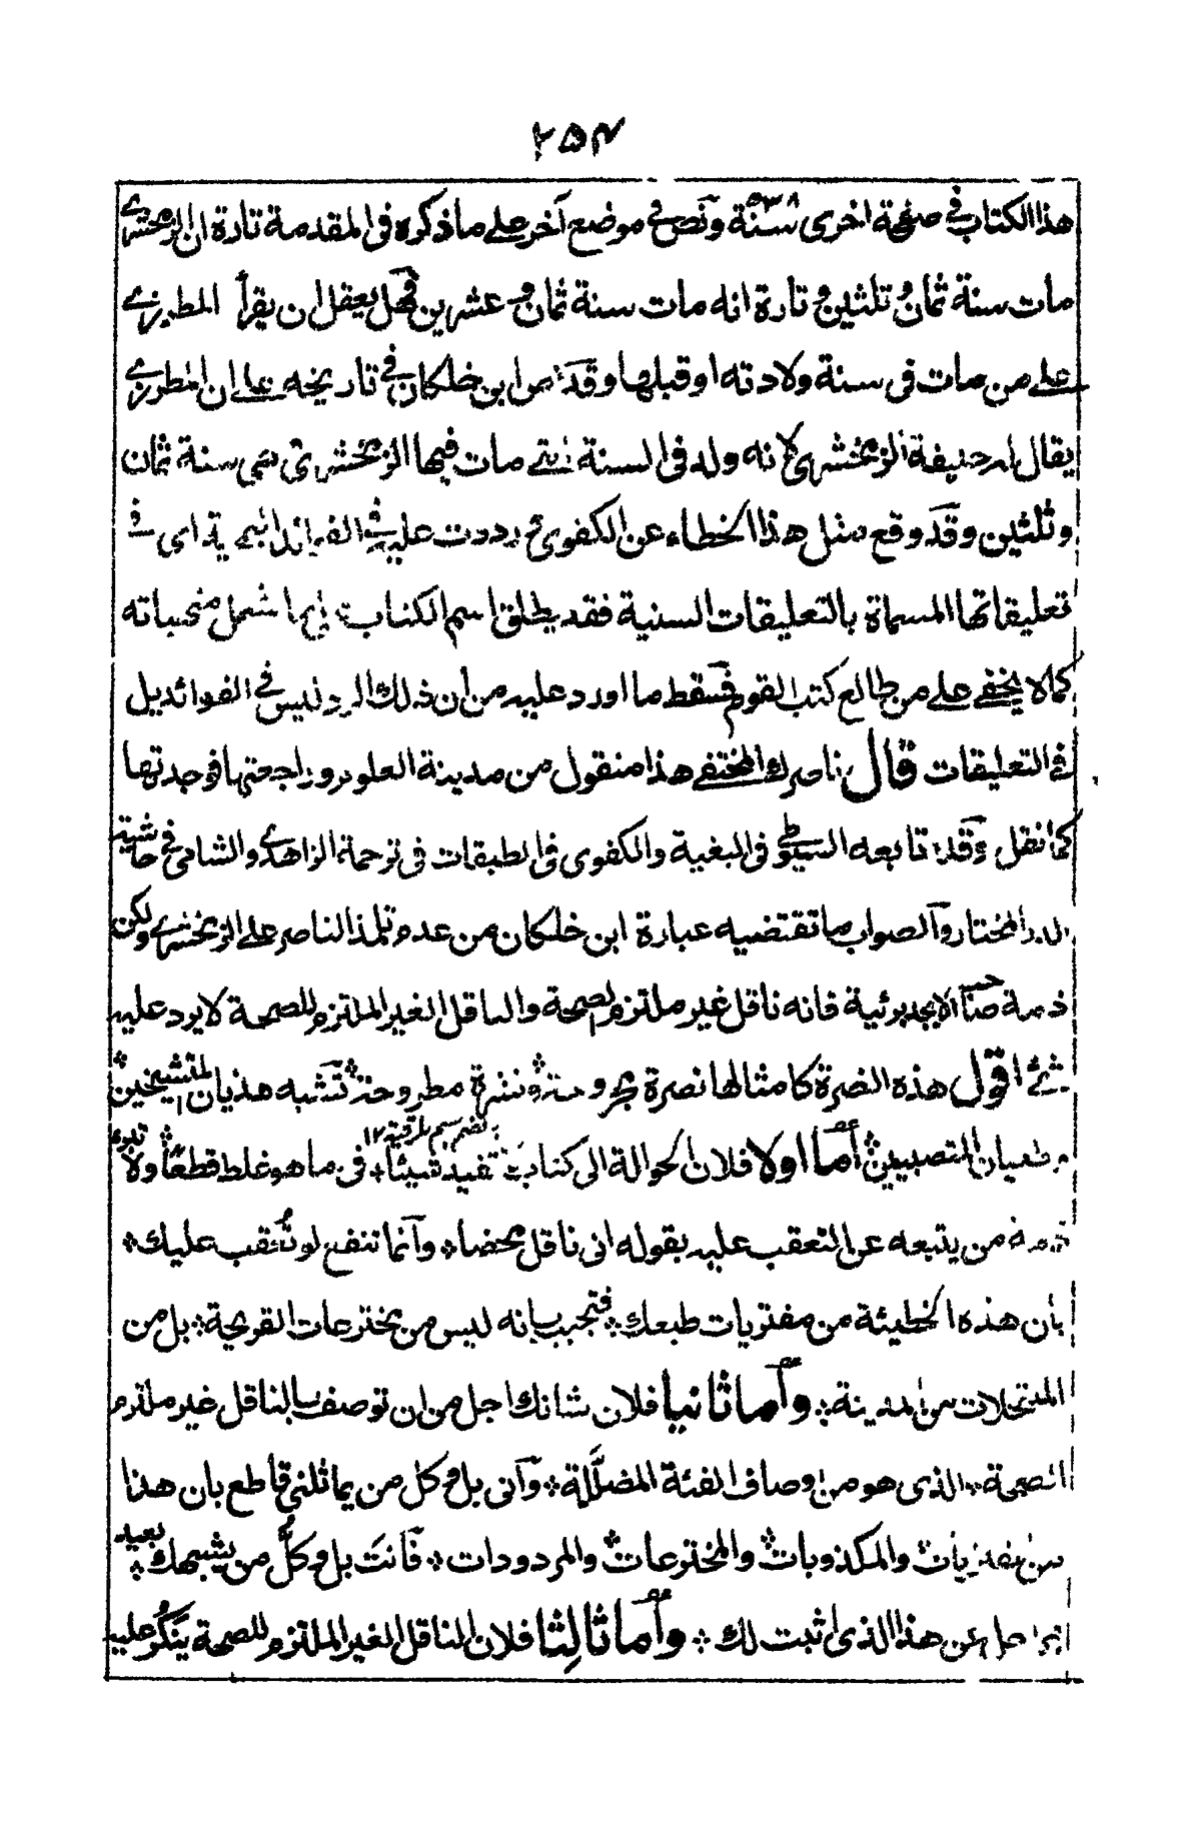 ٢٥٤
هذا الكتاب في صفحة اخرى سنة ٥٣٨ ونص في موضع آخر على ما ذكره في المقدمة تارة ان الزمخشري
مات سنة ثمان وثلثين وتارة انه مات سنة ثمان وعشرين فهل يعقل ان يقرأ المطرزي
على من مات في سنة ولادته او قبلها وقد نص ابن خلكان في تاريخه على ان المطرزي
يقال له خليفة الزمخشري لانه ولد في السنة التي مات فيها الزمخشري وهي سنة ثمان
وثلثين وقد وقع مثل هذا الخطاء عن الكفوي ورددت عليه في الفوائد البهية اى في
تعليقاتها المسماة بالتعليقات السنية فقد يطلق اسم الكتاب بما شمل منهياته
كما لا يخفى على من طالع كتب القوم فسقط ما اورد عليه من ان ذلك الرد ليس في الفوائد بل
في التعليقات قال ناصرك المختفى هذا منقول من مدينة العلوم وراجعتها فوجدتها
كما نقل وقد تابعه السيوطي في البغية والكفوى في الطبقات في ترجمة الزاهدى والشامى في حاشية
الدر المختار والصواب ما تقتضيه عبارة ابن خلكان من عدم تلمذ الناصر على الزمخشري ولكن
ذمة صاحب الابجد برئية فانه ناقل غير ملتزم لصحة والناقل الغير الملتزم للصحة لا يرد عليه
شئ اقول هذه النصرة كامثالها نصرة مجروحة ونثرة مطروحة تشبه هذيان المتشيخين
وطغيان المتصبيين أما اولا فلان الحوالة الى كتاب تفيد شيئا في ما هو غلط قطعا ولا تبرء
ذمة من يتبعه عن التعقب عليه بقوله انى ناقل محضا وانما تنفع لو تُعقب عليك
بأن هذه الخطيئة من مفتريات طبعك فتجيب بانه ليس من مخترعات القريحة بل من
المنتحلات من المدينة وأما ثانيا فلان شانك اجل من ان توصف بالناقل غير ملتزم
الصحة الذى هو من اوصاف الفئة المضللة وآنى بل وكل من يماثلنى قاطع بان هذا
من المفتريات والمكذوبات والمخترعات والمردودات فأنت بل وكل من يشبهك بعيد
بمراحل عن هذا الذى اثبت لك وأما ثالثا فلان الناقل الغير الملتزم للصحة ينكر عليه